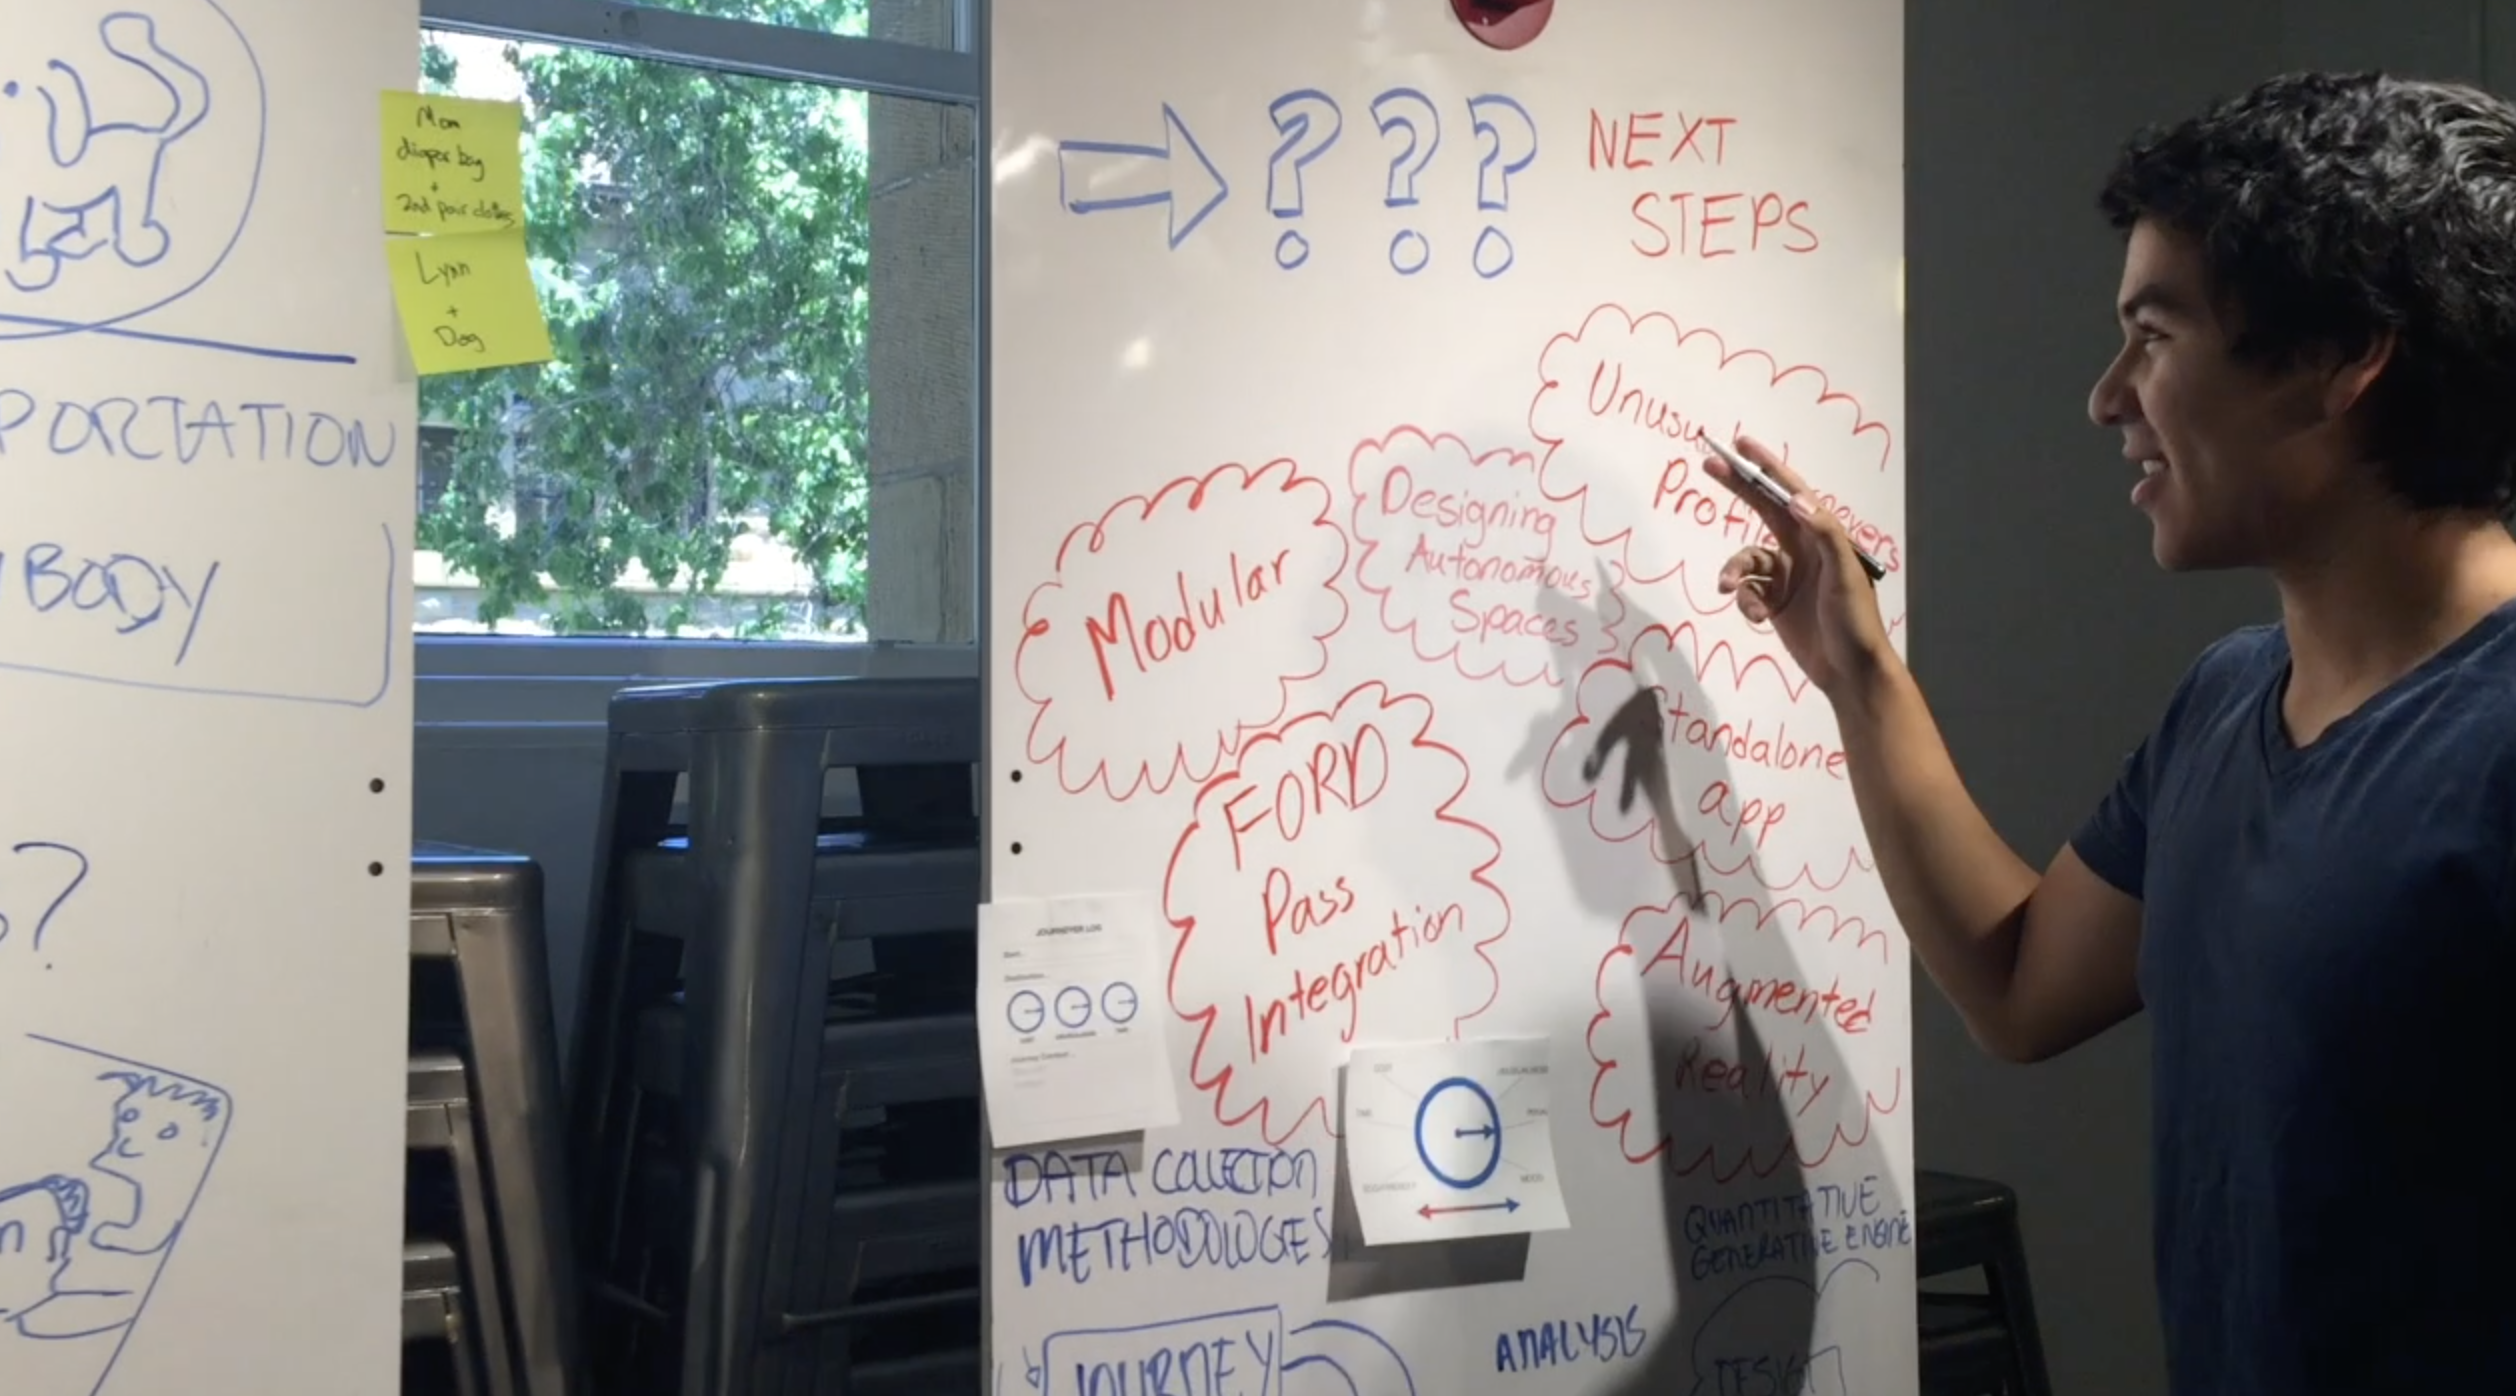 Mom
diaper bag
+
2nd pair clothes
Lynn
+
Dog
PORTATION
BODY
?
? ? ?
NEXT
STEPS
Unusual
Profile
Designing
Autonomous
Spaces
Modular
Standalone
app
FORD
Pass
Integration
Augmented
Reality
JOURNEYER LOG
DATA COLLECTION
METHODOLOGIES
QUANTITATIVE
GENERATIVE ENGINE
ANALYSIS
JOURNEY
DESIGN